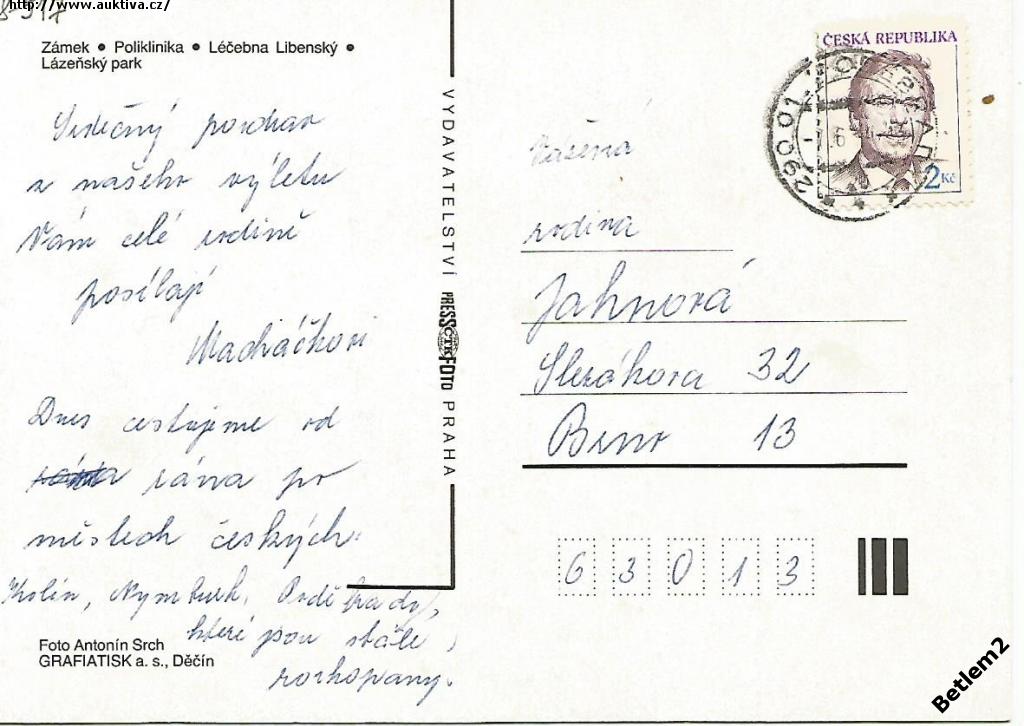 http://www.auktiva.cz/
Zámek • Poliklinika • Léčebna Libenský •
Lázeňský park
Srdečný pozdrav
z našeho výletu
Vám celé rodině
posílají
Macháčkovi
Dnes cestujeme od
rána po
městech českých:
Kolín, Nymburk, Poděbrady,
které jsou stále
rozkopany.
Foto Antonín Srch
GRAFIATISK a. s., Děčín
VYDAVATELSTVÍ PRESSFOTO PRAHA
ČTK
ČESKÁ REPUBLIKA
2 Kč
290 01
Vážená
rodina
Jahnová
Slezákova 32
Brno 13
6 3 0 1 3
Betlem2